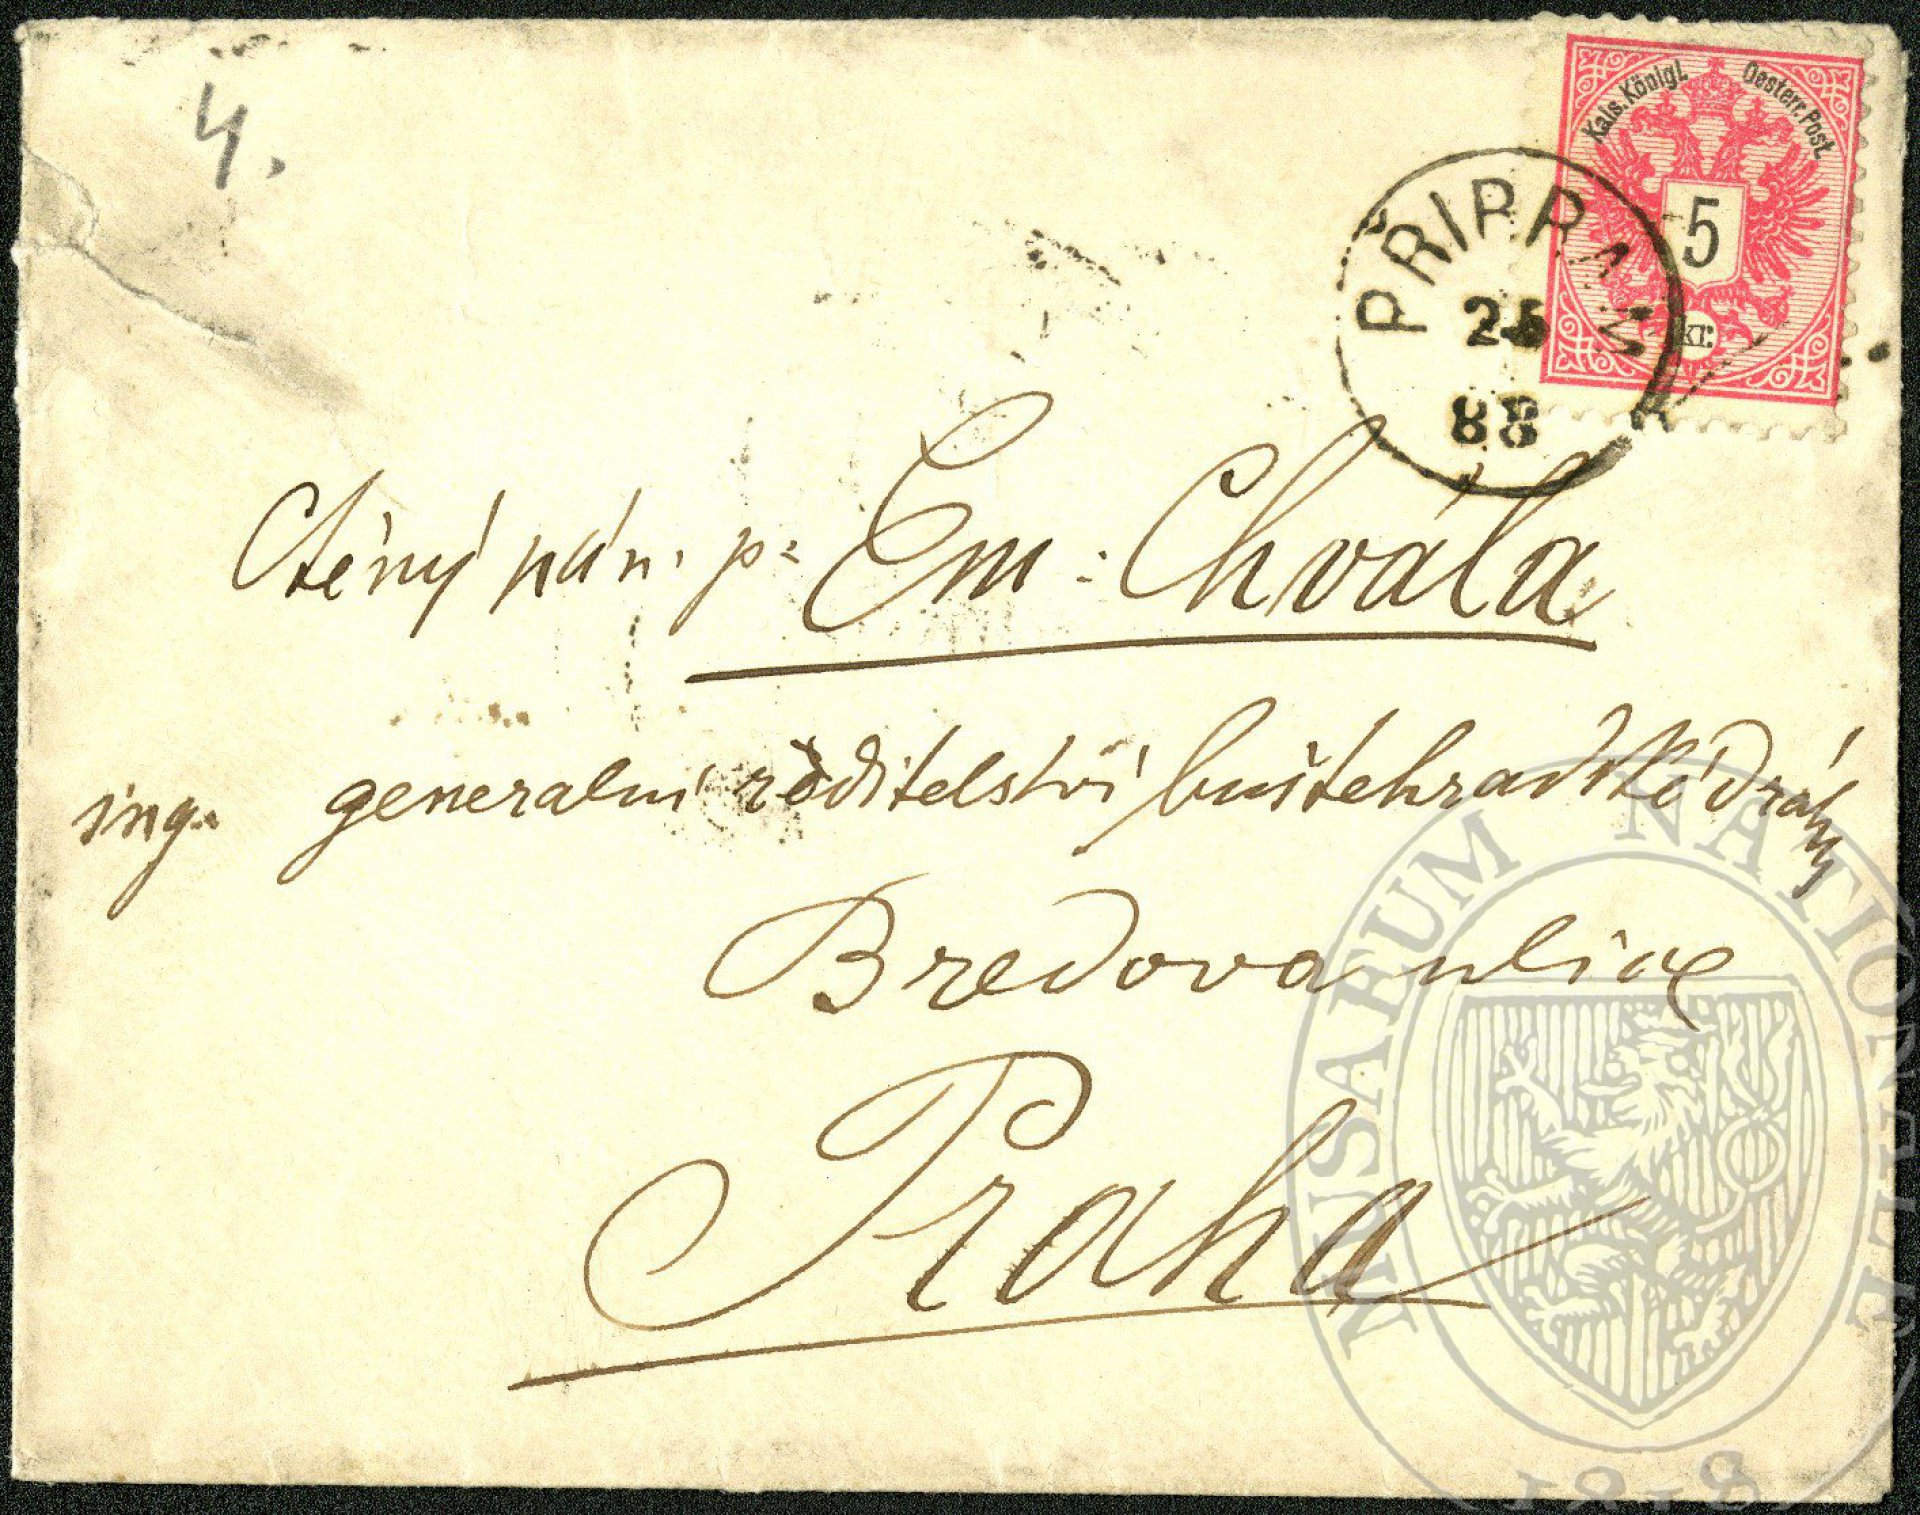 4.
Kais. Königl. Oesterr. Post.
5
kr.
PŘIBRAM
25
88
Ctěný pán. p: Em: Chvála
ing. generalní ředitelství buštehradské dráhy
Bredova ulice
Praha
MUSAEUM NATIONALE
1818